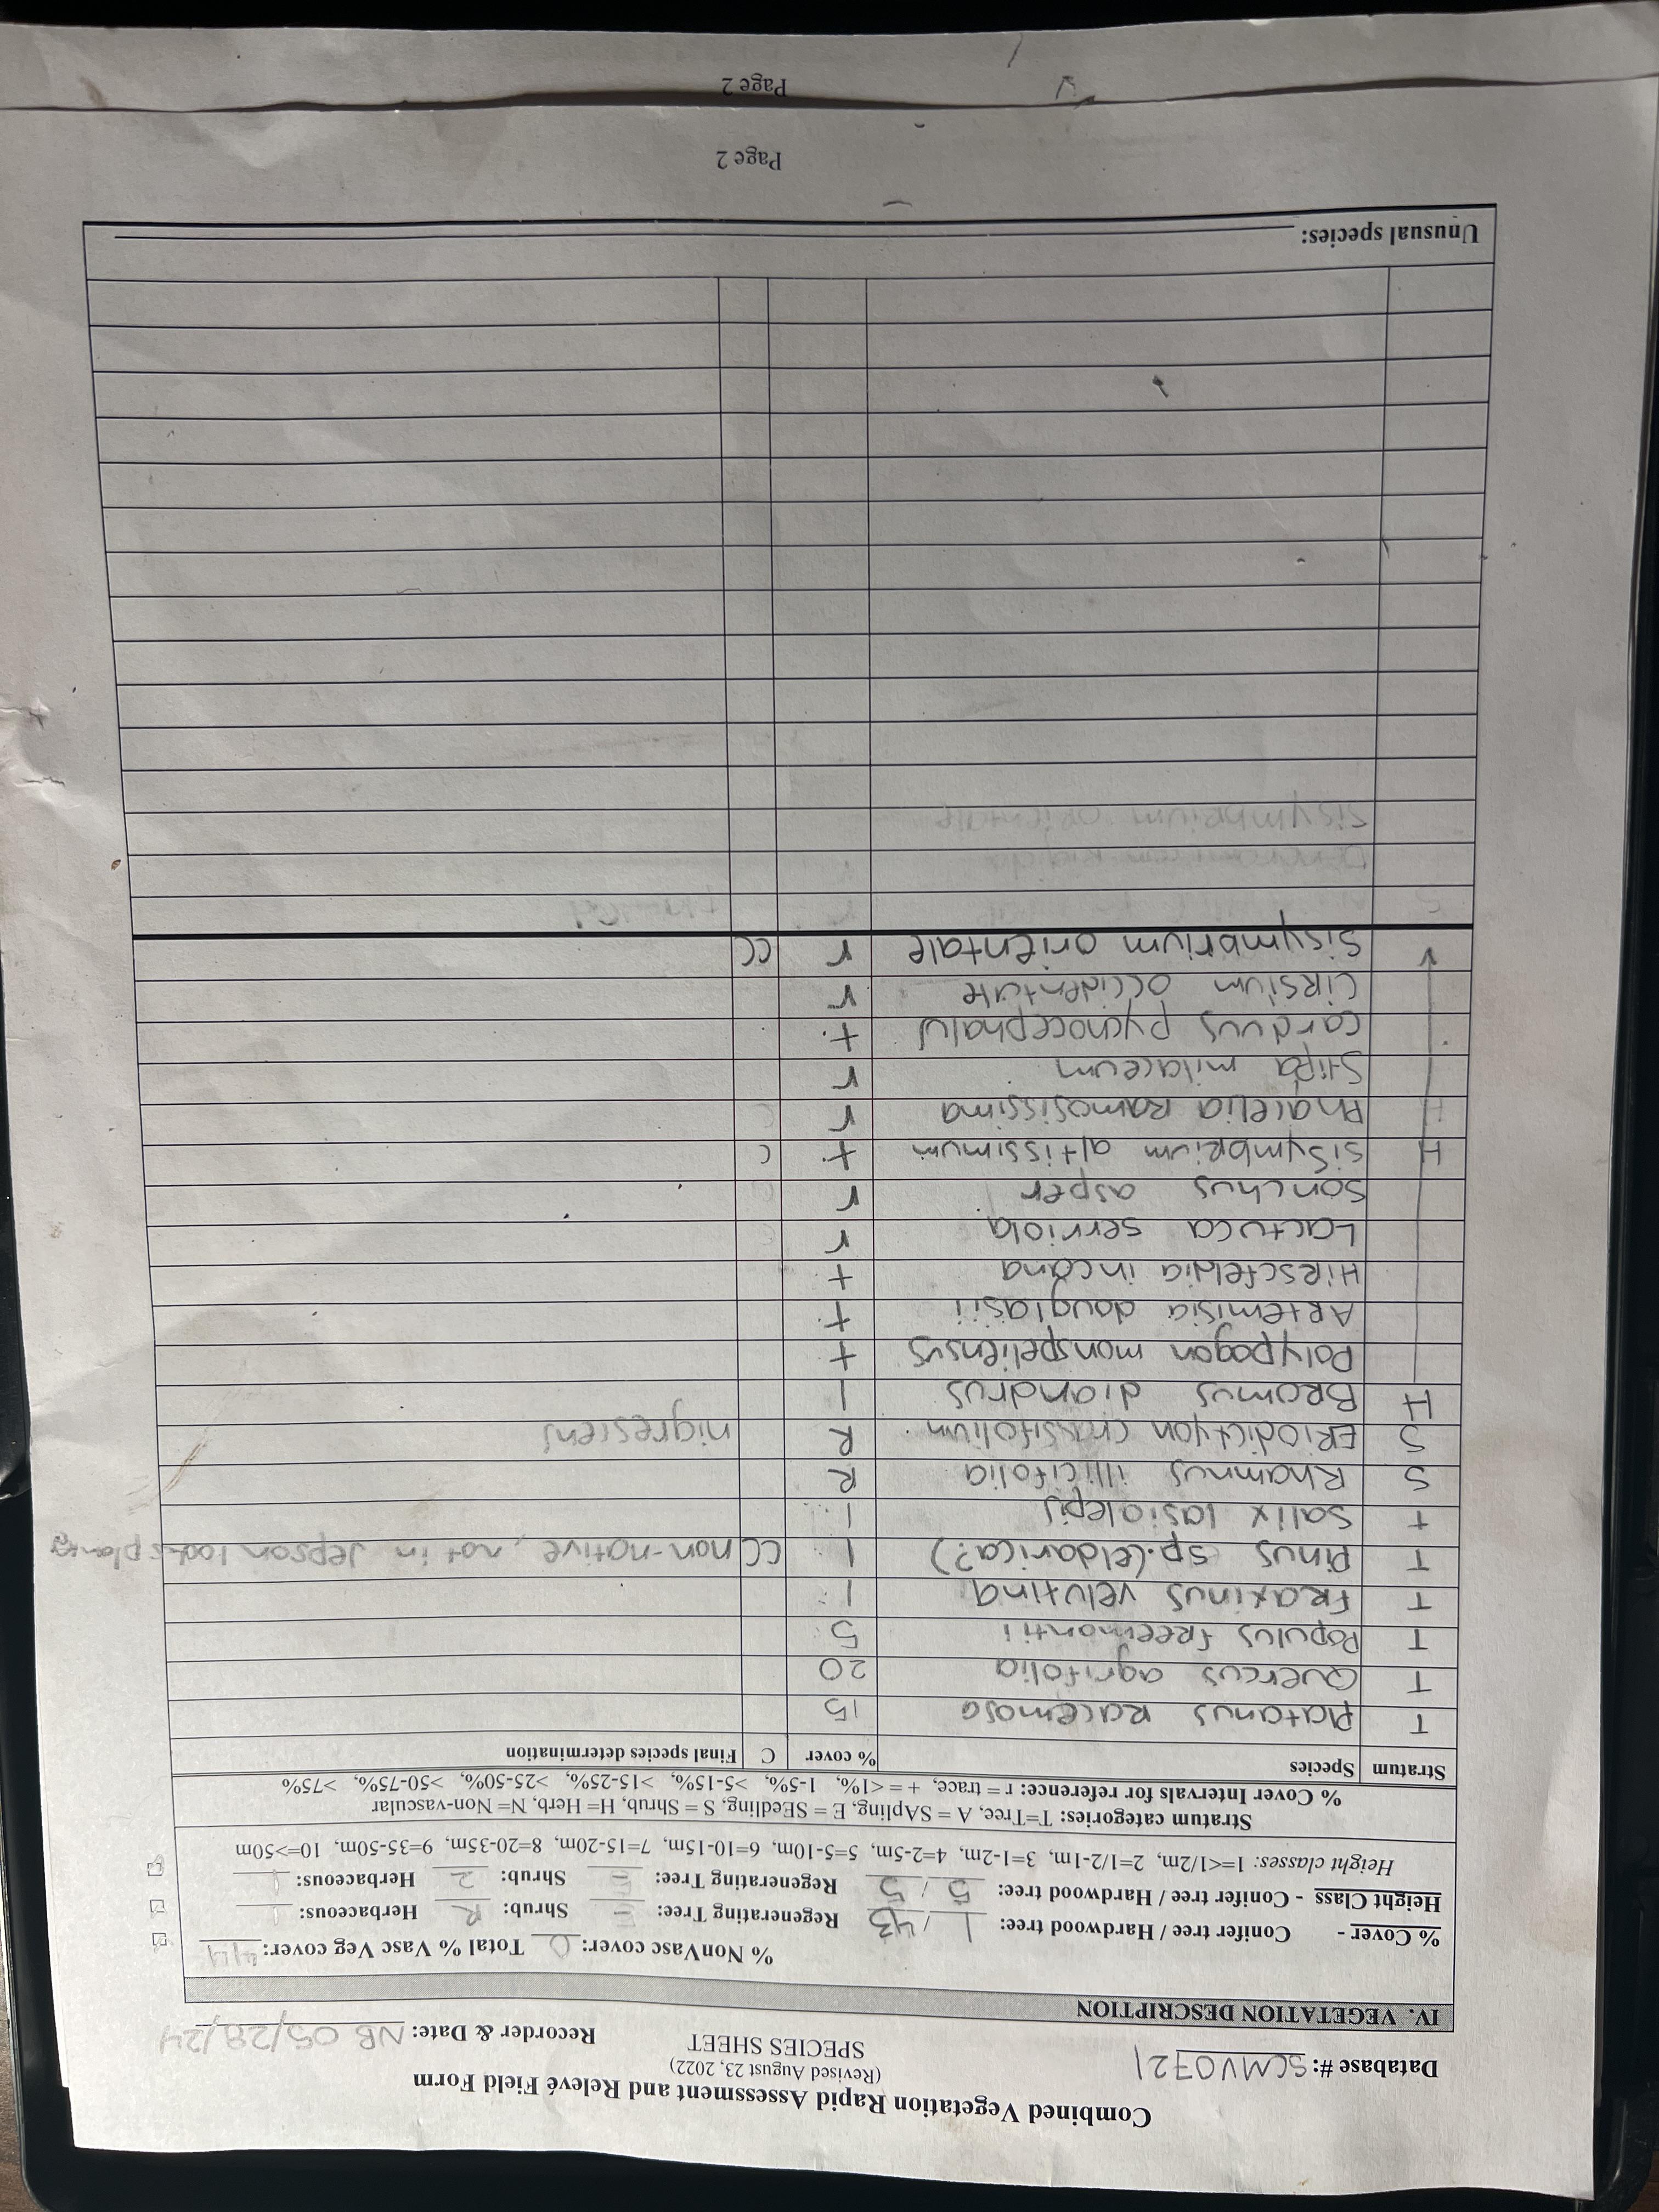 Combined Vegetation Rapid Assessment and Relevé Field Form
(Revised August 23, 2022)
Database #: SCMV0721 SPECIES SHEET Recorder & Date: NB 05/28/24
IV. VEGETATION DESCRIPTION
% NonVasc cover: 0 Total % Vasc Veg cover: 44
% Cover - Conifer tree / Hardwood tree: 1 / 43 Regenerating Tree: – Shrub: R Herbaceous: 1
Height Class - Conifer tree / Hardwood tree: 5 / 5 Regenerating Tree: – Shrub: 2 Herbaceous: 1
Height classes: 1=<1/2m, 2=1/2-1m, 3=1-2m, 4=2-5m, 5=5-10m, 6=10-15m, 7=15-20m, 8=20-35m, 9=35-50m, 10=>50m
Stratum categories: T=Tree, A = SApling, E = SEedling, S = Shrub, H= Herb, N= Non-vascular
% Cover Intervals for reference: r = trace, + = <1%, 1-5%, >5-15%, >15-25%, >25-50%, >50-75%, >75%
Stratum Species % cover C Final species determination
T Platanus Racemosa 15
T Quercus agrifolia 20
T Populus freemontii 5
T Fraxinus velutina 1
T Pinus sp. (eldarica?) 1 CC non-native, not in Jepson
T Salix lasiolepis 1
S Rhamnus illicifolia R
S ERiodictyon crassifolium R nigrescens
H BRomus diandrus 1
Polypogon monspeliensus +
ARtemisia douglasii +
Hirscfeldia incana +
Lactuca serriola r
Sonchus asper r
H SiSymbrium altissimum + C
H Phacelia Ramosissima r
Stipa milaceum r
Carduus pycnocephalu +
CiRsium occidentale r
Sisymbrium orientale r CC
Sisymbrium orientale
Unusual species:
Page 2
Page 2